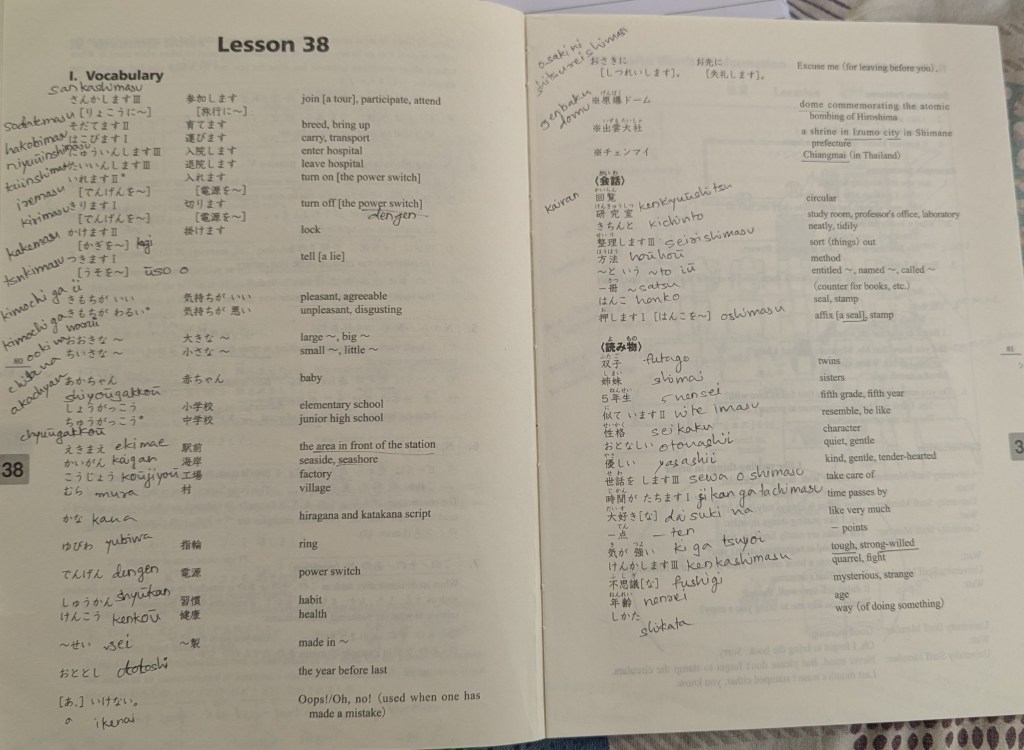 Lesson 38
I. Vocabulary
sankashimasu
さんかしますⅢ 参加します join [a tour], participate, attend
[りょこうに～] [旅行に～]
sodatemasu そだてますⅡ 育てます breed, bring up
hakobimasu はこびますⅠ 運びます carry, transport
niyuuinshimasu にゅういんしますⅢ 入院します enter hospital
taiinshimasu たいいんしますⅢ 退院します leave hospital
iremasu いれますⅡ* 入れます turn on [the power switch]
[でんげんを～] [電源を～]
kirimasu きりますⅠ 切ります turn off [the power switch]
[でんげんを～] [電源を～] dengen
kakemasu かけますⅡ 掛けます lock
[かぎを～] kagi
tsukimasu つきますⅠ tell [a lie]
[うそを～] uso o
kimochi ga ii きもちが いい 気持ちが いい pleasant, agreeable
kimochi ga warui きもちが わるい* 気持ちが 悪い unpleasant, disgusting
ookina おおきな ～ 大きな ～ large ～, big ～
chisana ちいさな ～ 小さな ～ small ～, little ～
80
akachyan あかちゃん 赤ちゃん baby
shiyougakkou
しょうがっこう 小学校 elementary school
ちゅうがっこう* 中学校 junior high school
chyuugakkou
えきまえ ekimae 駅前 the area in front of the station
かいがん kaigan 海岸 seaside, seashore
38
こうじょう koujiyou 工場 factory
むら mura 村 village
かな kana hiragana and katakana script
ゆびわ yubiwa 指輪 ring
でんげん dengen 電源 power switch
しゅうかん shyukan 習慣 habit
けんこう kenkou 健康 health
～せい sei ～製 made in ～
おととし ototoshi the year before last
[あ、] いけない。 Oops!/Oh, no! (used when one has
made a mistake)
a ikenai
osakini
shitsureishimasu
おさきに お先に Excuse me (for leaving before you).
[しつれいします]。 [失礼します]。
genbaku domu
げんばく
※原爆ドーム dome commemorating the atomic
bombing of Hiroshima
いずもたいしゃ
※出雲大社 a shrine in Izumo city in Shimane
prefecture
※チェンマイ Chiangmai (in Thailand)
かいわ
〈会話〉
かいらん
kairan 回覧 circular
けんきゅうしつ
研究室 kenkyuushitsu study room, professor's office, laboratory
きちんと kichinto neatly, tidily
せいり
整理しますⅢ seirishimasu sort (things) out
ほうほう
方法 houhou method
～と いう ～to iu entitled ～, named ～, called ～
さつ
―冊 ～satsu (counter for books, etc.)
はんこ hanko seal, stamp
お
押しますⅠ [はんこを～] oshimasu affix [a seal], stamp
よ もの
〈読み物〉
ふたご
双子 futago twins
しまい
姉妹 shimai sisters
ねんせい
５年生 5 nensei fifth grade, fifth year
に
似て いますⅡ nite imasu resemble, be like
せいかく
性格 seikaku character
おとなしい otonashii quiet, gentle
やさ
優しい yasashii kind, gentle, tender-hearted
せわ
世話を しますⅢ sewa o shimasu take care of
じかん
時間が たちますⅠ jikan ga tachimasu time passes by
だいす
大好き[な] daisuki na like very much
てん
―点 ―ten – points
き つよ
気が 強い ki ga tsuyoi tough, strong-willed
けんかしますⅢ kenkashimasu quarrel, fight
ふしぎ
不思議[な] fushigi mysterious, strange
ねんれい
年齢 nenrei age
しかた way (of doing something)
shikata
81